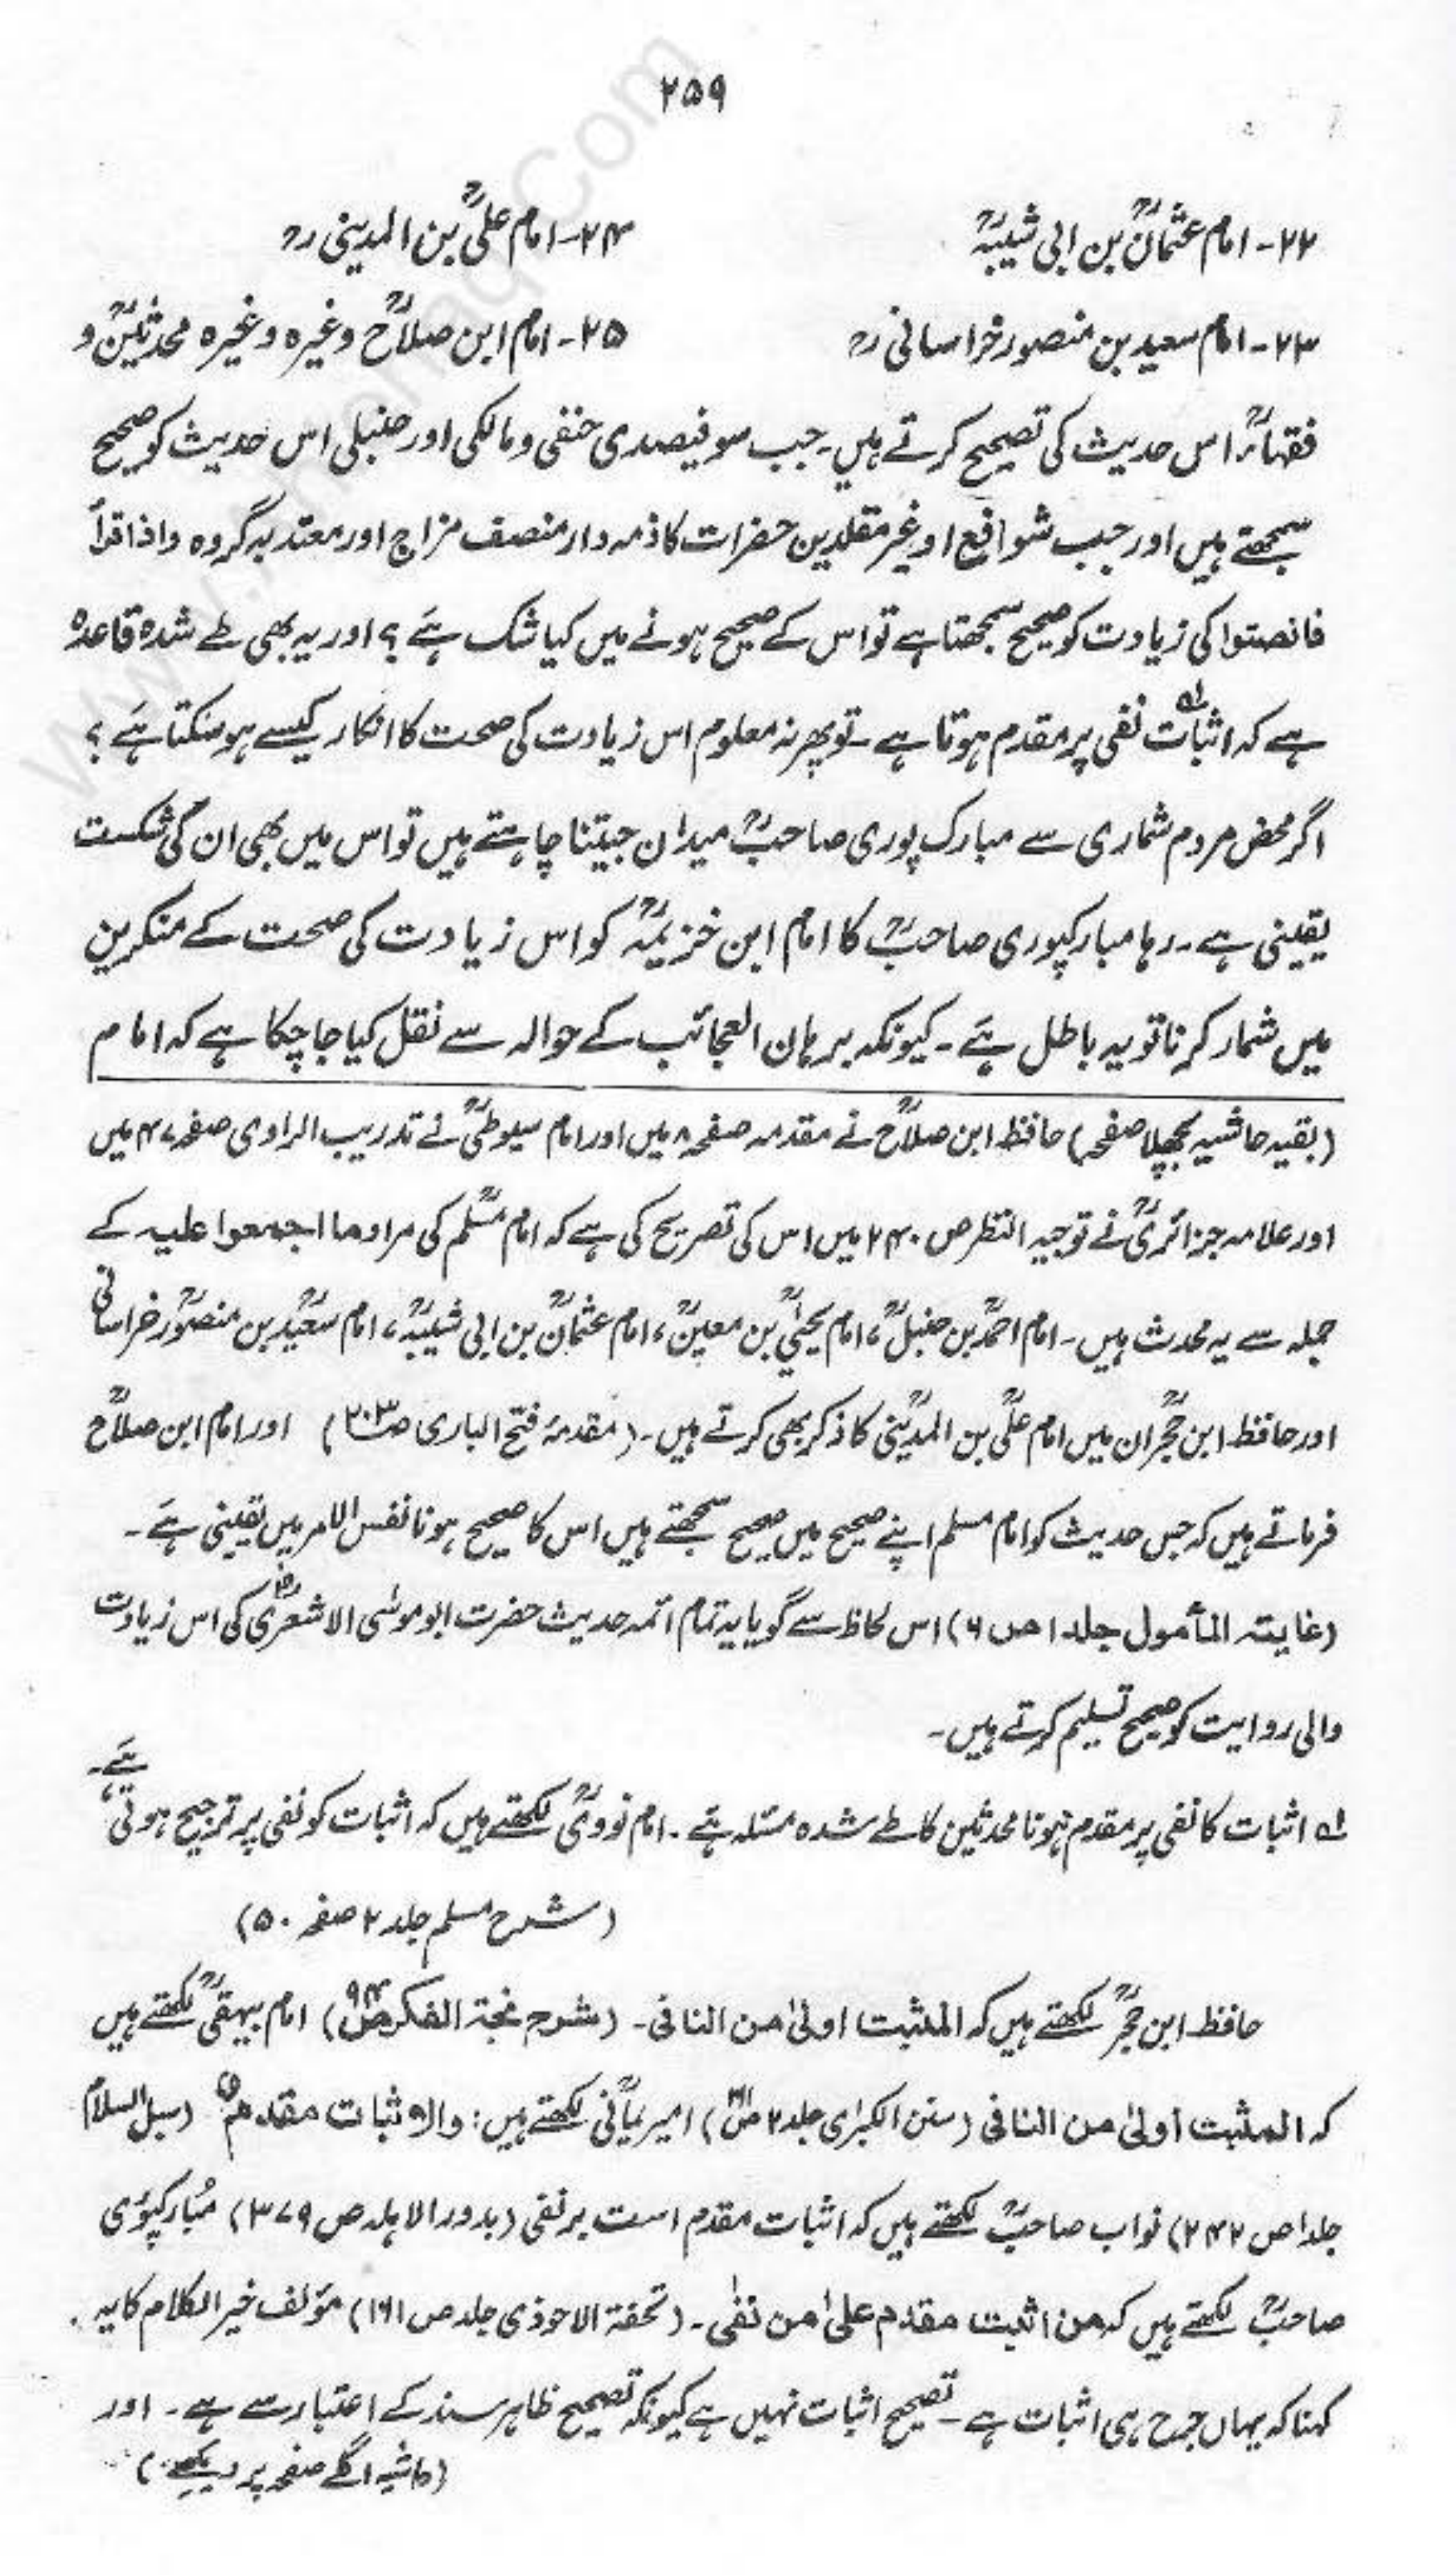 ۲۵۹
۲۲- امام عثمانؒ بن ابی شیبہؒ
۲۴- امام علیؒ بن المدینی رح
۲۳- امام سعید بن منصور خراسانی رح
۲۵- امام ابن صلاحؒ وغیرہ وغیرہ محدثینؒ و
فقہاءؒ اس حدیث کی تصحیح کرتے ہیں۔ جب سو فیصدی حنفی و مالکی اور حنبلی اس حدیث کو صحیح
سمجھتے ہیں اور جب شوافع او غیر مقلدین حضرات کا ذمہ دار منصف مزاج اور معتدبہ گروہ واذا قرأ
فانصتوا کی زیادت کو صحیح سمجھتا ہے تو اس کے صحیح ہونے میں کیا شک ہے؟ اور یہ بھی طے شدہ قاعدہ
ہے کہ اثبات لہ نفی پر مقدم ہوتا ہے۔ تو پھر نہ معلوم اس زیادت کی صحت کا انکار کیسے ہو سکتا ہے؟
اگر محض مردم شماری سے مبارک پوری صاحبؒ میدان جیتنا چاہتے ہیں تو اس میں بھی ان کی شکست
یقینی ہے۔ رہا مبارکپوری صاحبؒ کا امام ابن خزیمہؒ کو اس زیادت کی صحت کے منکرین
میں شمار کرنا تو یہ باطل ہے۔ کیونکہ برہان العجائب کے حوالہ سے نقل کیا جا چکا ہے کہ امام
(بقیہ حاشیہ پچھلا صفحہ) حافظ ابن صلاحؒ نے مقدمہ صفحہ ۸ میں اور امام سیوطیؒ نے تدریب الراوی صفحہ ۴۷ میں
اور علامہ جزائریؒ نے توجیہ النظر ص ۲۴۰ میں اس کی تصریح کی ہے کہ امام مسلمؒ کی مراد ما اجمعوا علیہ کے
جملہ سے یہ محدث ہیں۔ امام احمدؒ بن حنبلؒ، امام یحییٰؒ بن معینؒ، امام عثمانؒ بن ابی شیبہؒ، امام سعیدؒ بن منصورؒ خراسانی
اور حافظ ابن حجرؒ ان میں امام علیؒ بن المدینیؒ کا ذکر بھی کرتے ہیں۔ (مقدمہ فتح الباری ص۲۰۳) اور امام ابن صلاحؒ
فرماتے ہیں کہ جس حدیث کو امام مسلم اپنے صحیح میں صحیح سمجھتے ہیں اس کا صحیح ہونا نفس الامر میں یقینی ہے۔
(غایتہ المأمول جلد ۱ ص ۶) اس لحاظ سے گویا یہ تمام ائمہ حدیث حضرت ابو موسٰی الاشعریؓ کی اس زیادت
والی روایت کو صحیح تسلیم کرتے ہیں۔
لہ اثبات کا نفی پر مقدم ہونا محدثین کا طے شدہ مسئلہ ہے۔ امام نوویؒ لکھتے ہیں کہ اثبات کو نفی پر ترجیح ہوتی ہے۔
(شرح مسلم جلد ۲ صفحہ ۵۰)
حافظ ابن حجرؒ لکھتے ہیں کہ المثبت اولیٰ من النافی۔ (شرح نخبۃ الفکر ص۹۴) امام بیہقیؒ لکھتے ہیں
کہ المثبت أولیٰ من النافی (سنن الکبرٰی جلد ۲ ص) امیر یمانیؒ لکھتے ہیں: والاثبات مقدم (سبل السلام
جلد ۱ ص ۲۴۲) نواب صاحبؒ لکھتے ہیں کہ اثبات مقدم است بر نفی (بدور الاہلہ ص ۳۷۹) مبارکپوری
صاحبؒ لکھتے ہیں کہ من اثبت مقدم علیٰ من نفٰی۔ (تحفۃ الاحوذی جلد ص ۱۶۱) مؤلف خیر الکلام کا یہ
کہنا کہ یہاں جرح ہی اثبات ہے۔ تصحیح اثبات نہیں ہے کیونکہ تصحیح ظاہر سند کے اعتبار سے ہے۔ اور
(حاشیہ اگلے صفحہ پر دیکھئے)